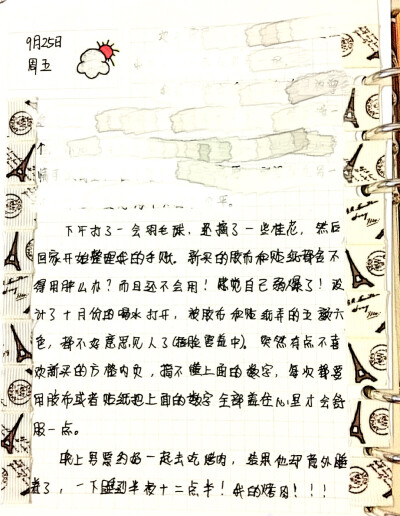 9月25日
周五
下午打了一会羽毛球，还摘了一些桂花，然后
回家开始整理我的手账。新买的胶布和贴纸都舍不
得用肿么办？而且还不会用！感觉自己弱爆了！设
计了十月份的喝水打卡，被胶布和贴纸弄的五颜六
色，都不好意思见人了(捂脸害羞中)。突然有点不喜
欢新买的方格内页，搞不懂上面的数字，每次都要
用胶布或者贴纸把上面的数字全部盖住心里才会舒
服一点。
晚上男票约好一起去吃烤肉，结果他却意外睡
着了，一下睡到半夜十二点半！我的烤肉！！！